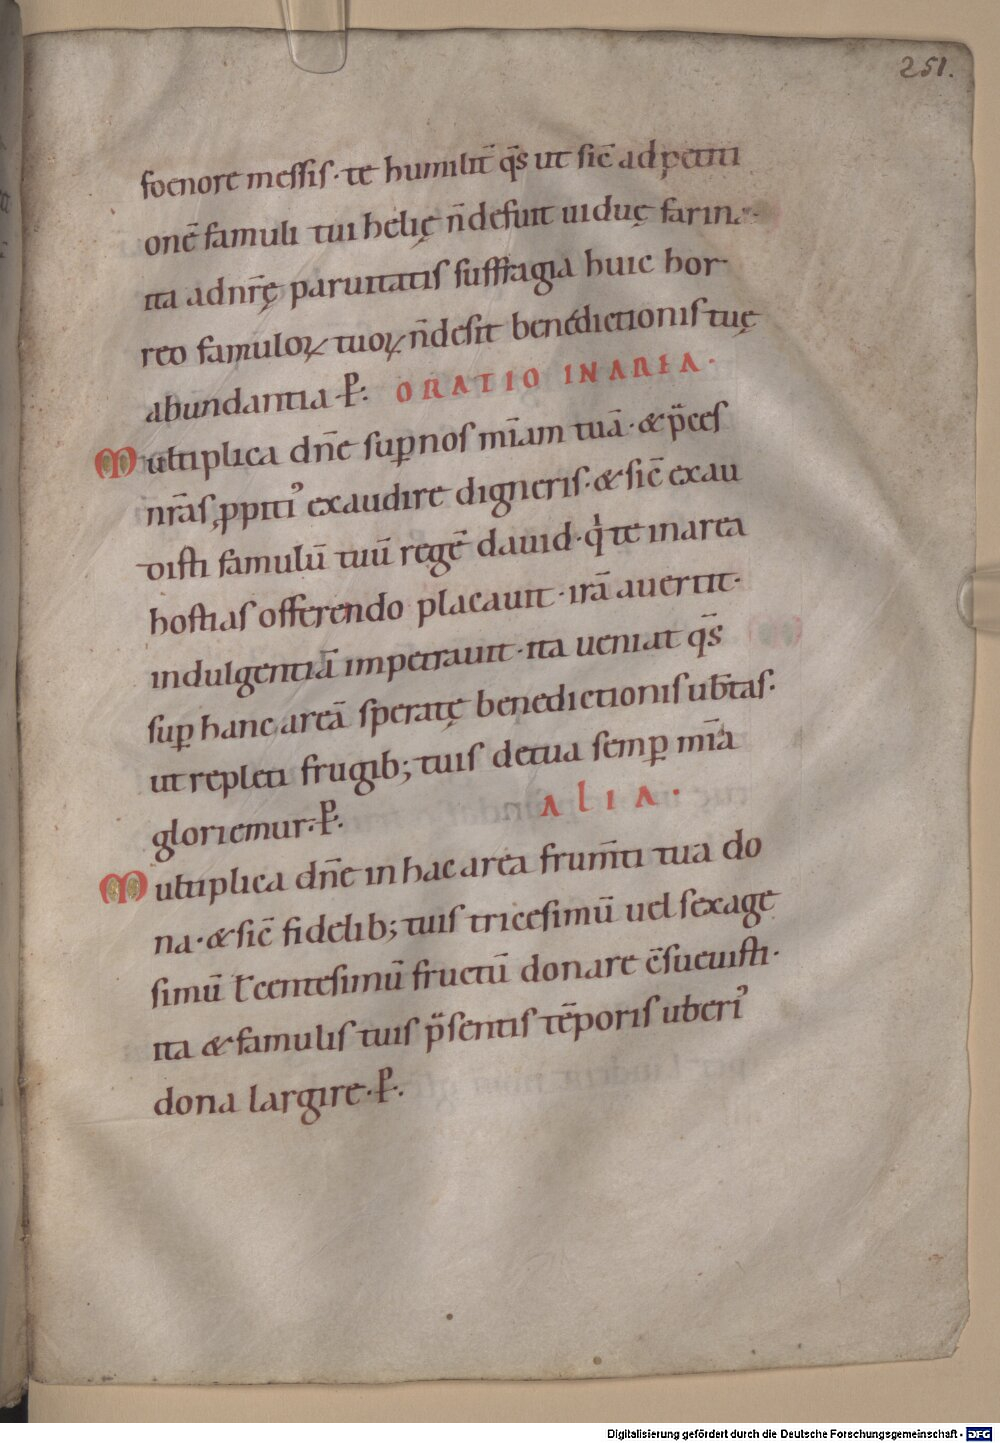 251.
foenore messis· te humilit̄ q̄s ut sic̄ ad petiti
onē famuli tui helię n̄ defuit uiduę farina·
ita ad nr̄ę paruitatis suffragia huic hor
reo famuloꝝ tuoꝝ n̄ desit benedictionis tuę
abundantia· P̄: ORATIO IN AREA·
Multiplica dn̄e sup̱ nos mīam tuā· & p̄ces
nr̄as, ꝓpitiꝰ exaudire digneris· & sic̄ exau
disti famulū tuū regē dauid· qͥ te in area
hostias offerendo placauit· irā auertit·
indulgentiā impetrauit· ita ueniat q̄s
sup̱ hanc areā speratę benedictionis ub̄tas·
ut repleti frugib; tuis de tua semp̱ mīa
gloriemur:· P̄: ALIA·
Multiplica dn̄e in hac area frum̄ti tua do
na· & sic̄ fidelib; tuis tricesimū uel sexage
simū ł centesimū fructū donare c̄sueuisti·
ita & famulis tuis p̄sentis tēporis uberiꝰ
dona largire· P̄:
Digitalisierung gefördert durch die Deutsche Forschungsgemeinschaft - DFG